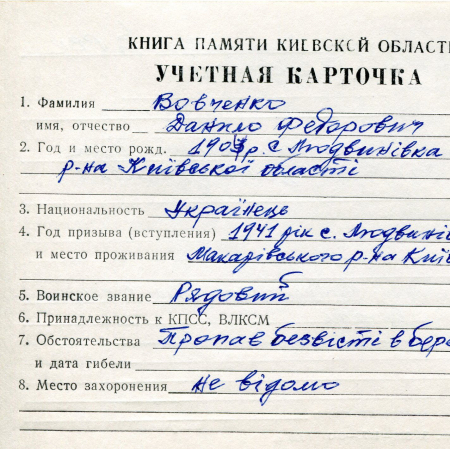 КНИГА ПАМЯТИ КИЕВСКОЙ ОБЛАСТ
УЧЕТНАЯ КАРТОЧКА
1. Фамилия Вовченко
имя, отчество Данило Федорович
2. Год и место рожд. р. с. Людвинівка
р-на Київської області
3. Национальность Українець
4. Год призыва (вступления) 1941 рік с. Людвині
и место проживания Макарівського р-на Киї
5. Воинское звание Рядовий
6. Принадлежность к КПСС, ВЛКСМ
7. Обстоятельства Пропав безвісті в бере
и дата гибели
8. Место захоронения не відомо